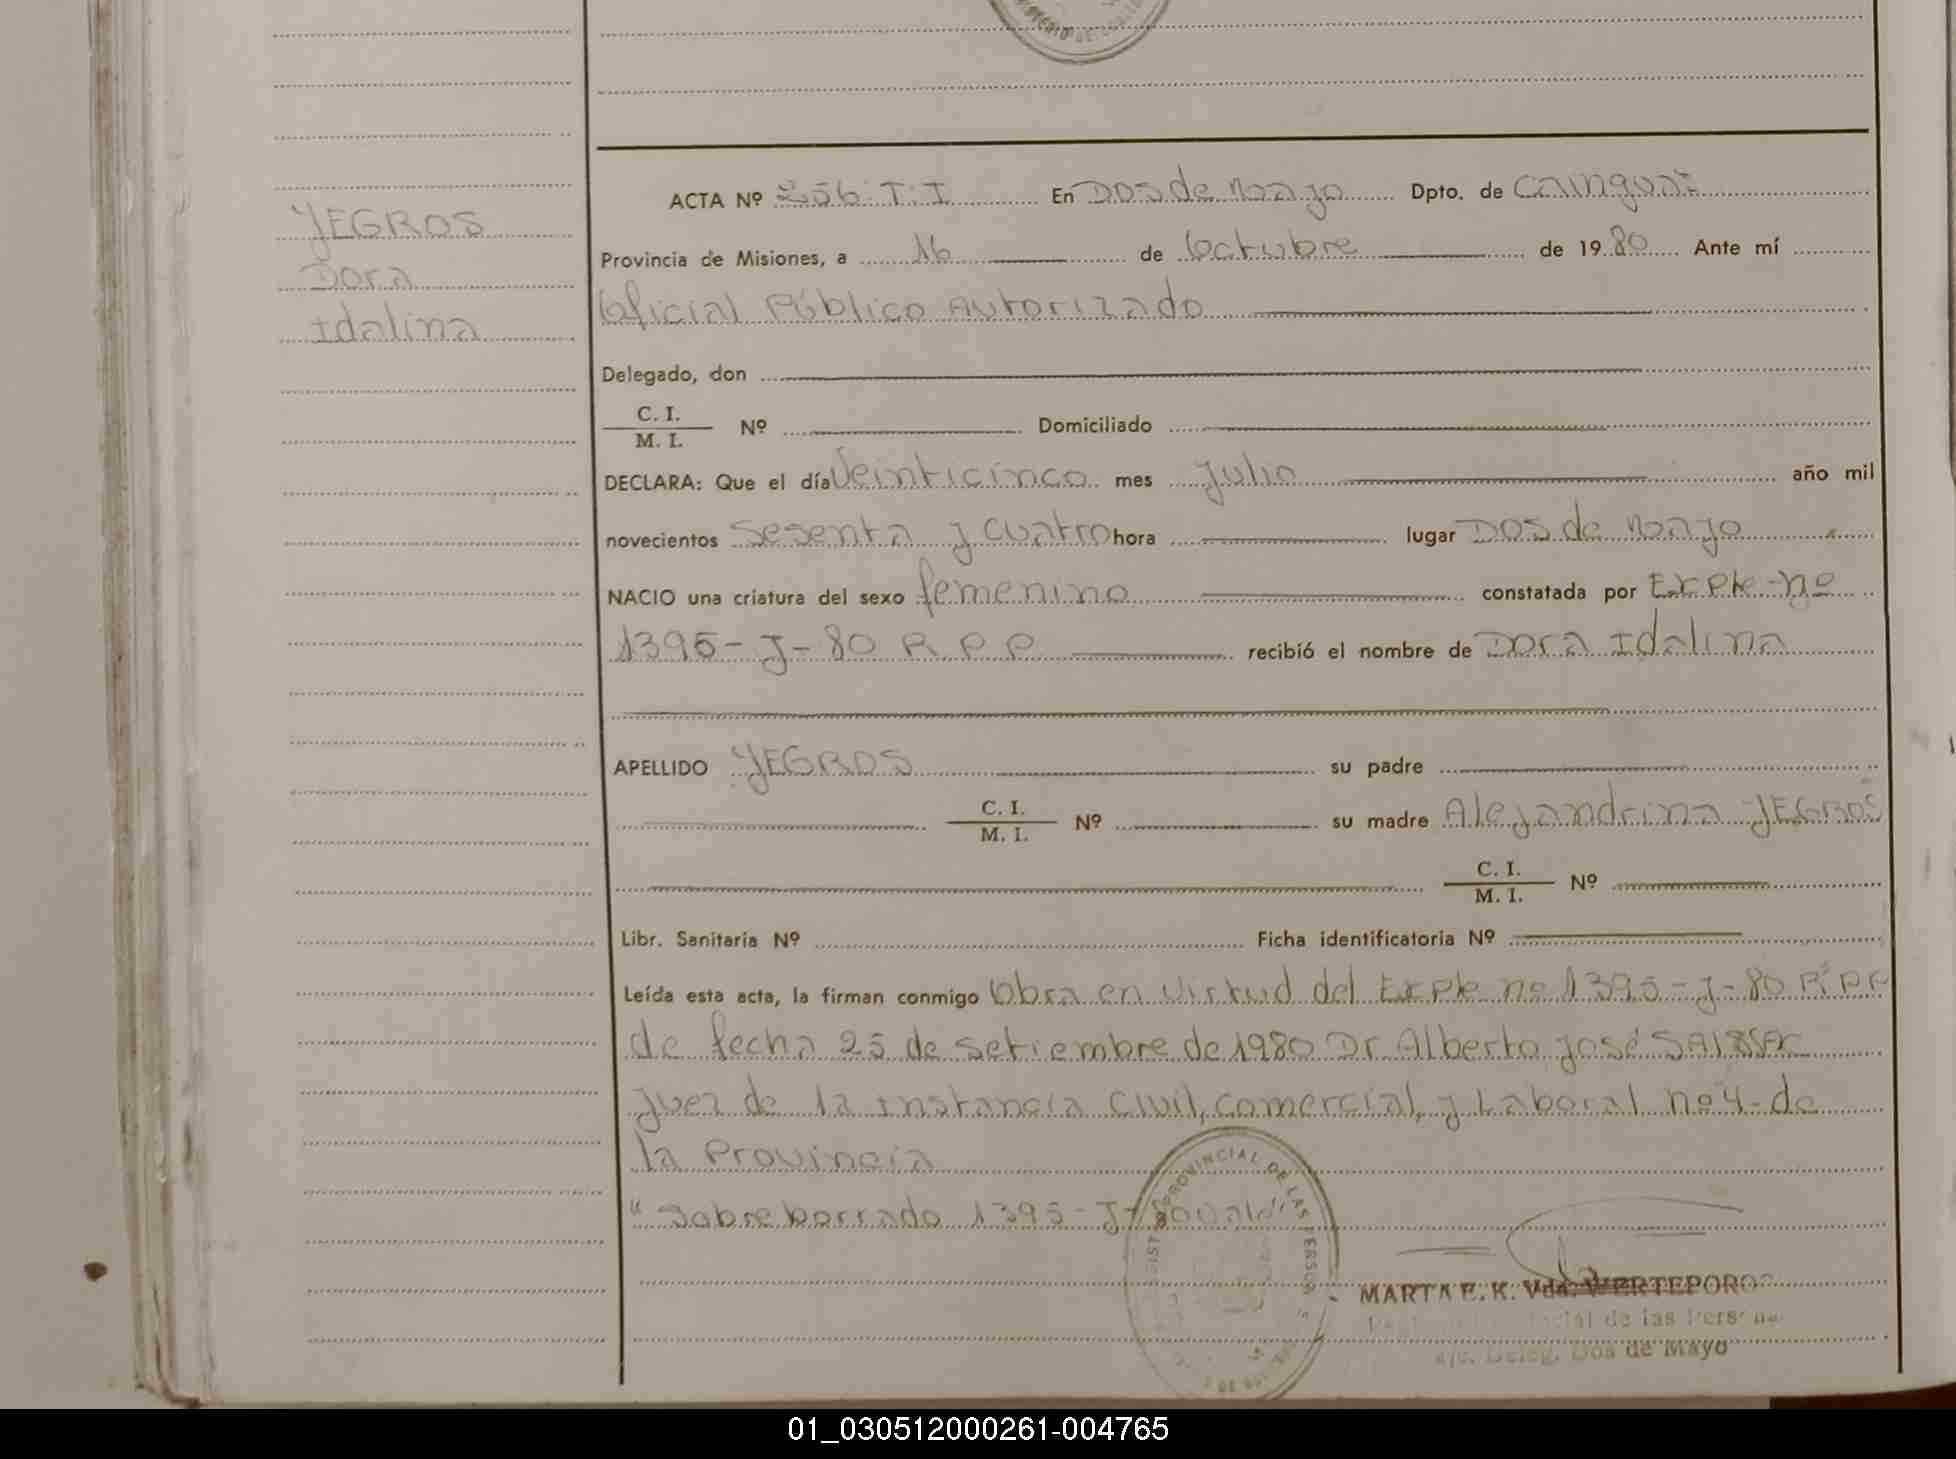 YEGROS
Dora
Idalina
ACTA Nº 256 T. I En Dos de Mayo Dpto. de Cainguas
Provincia de Misiones, a 16 de Octubre de 1980 Ante mí
Oficial Público Autorizado
Delegado, don
C. I.
M. I.
Nº Domiciliado
DECLARA: Que el día Veinticinco mes Julio año mil
novecientos sesenta y cuatro hora lugar Dos de Mayo
NACIO una criatura del sexo femenino constatada por Expte-nº
1395-J-80 R P P recibió el nombre de Dora Idalina
APELLIDO YEGROS su padre
C. I.
M. I.
Nº su madre Alejandrina YEGROS
C. I.
M. I.
Nº
Libr. Sanitaria Nº Ficha identificatoria Nº
Leída esta acta, la firman conmigo Obra en virtud del Expte nº 1395-J-80 R P P
de fecha 25 de setiembre de 1980 Dr Alberto José
Juez de 1a Instancia Civil, comercial, y Laboral nº 4- de
la Provincia
" Sobre borrado 1395-J-80 Vale"
PROVINCIAL DE LAS PERSO
MARTA E. K. Vda. WERTEPORO
cial de las Perso
Deleg. Dos de Mayo
01_030512000261-004765